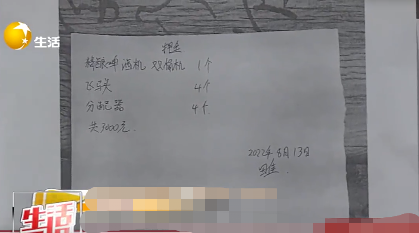 生活
精酿啤酒机 双保机 1个
飞马头 4个
分配器 4个
共3000元.
2022年8月13日
生活